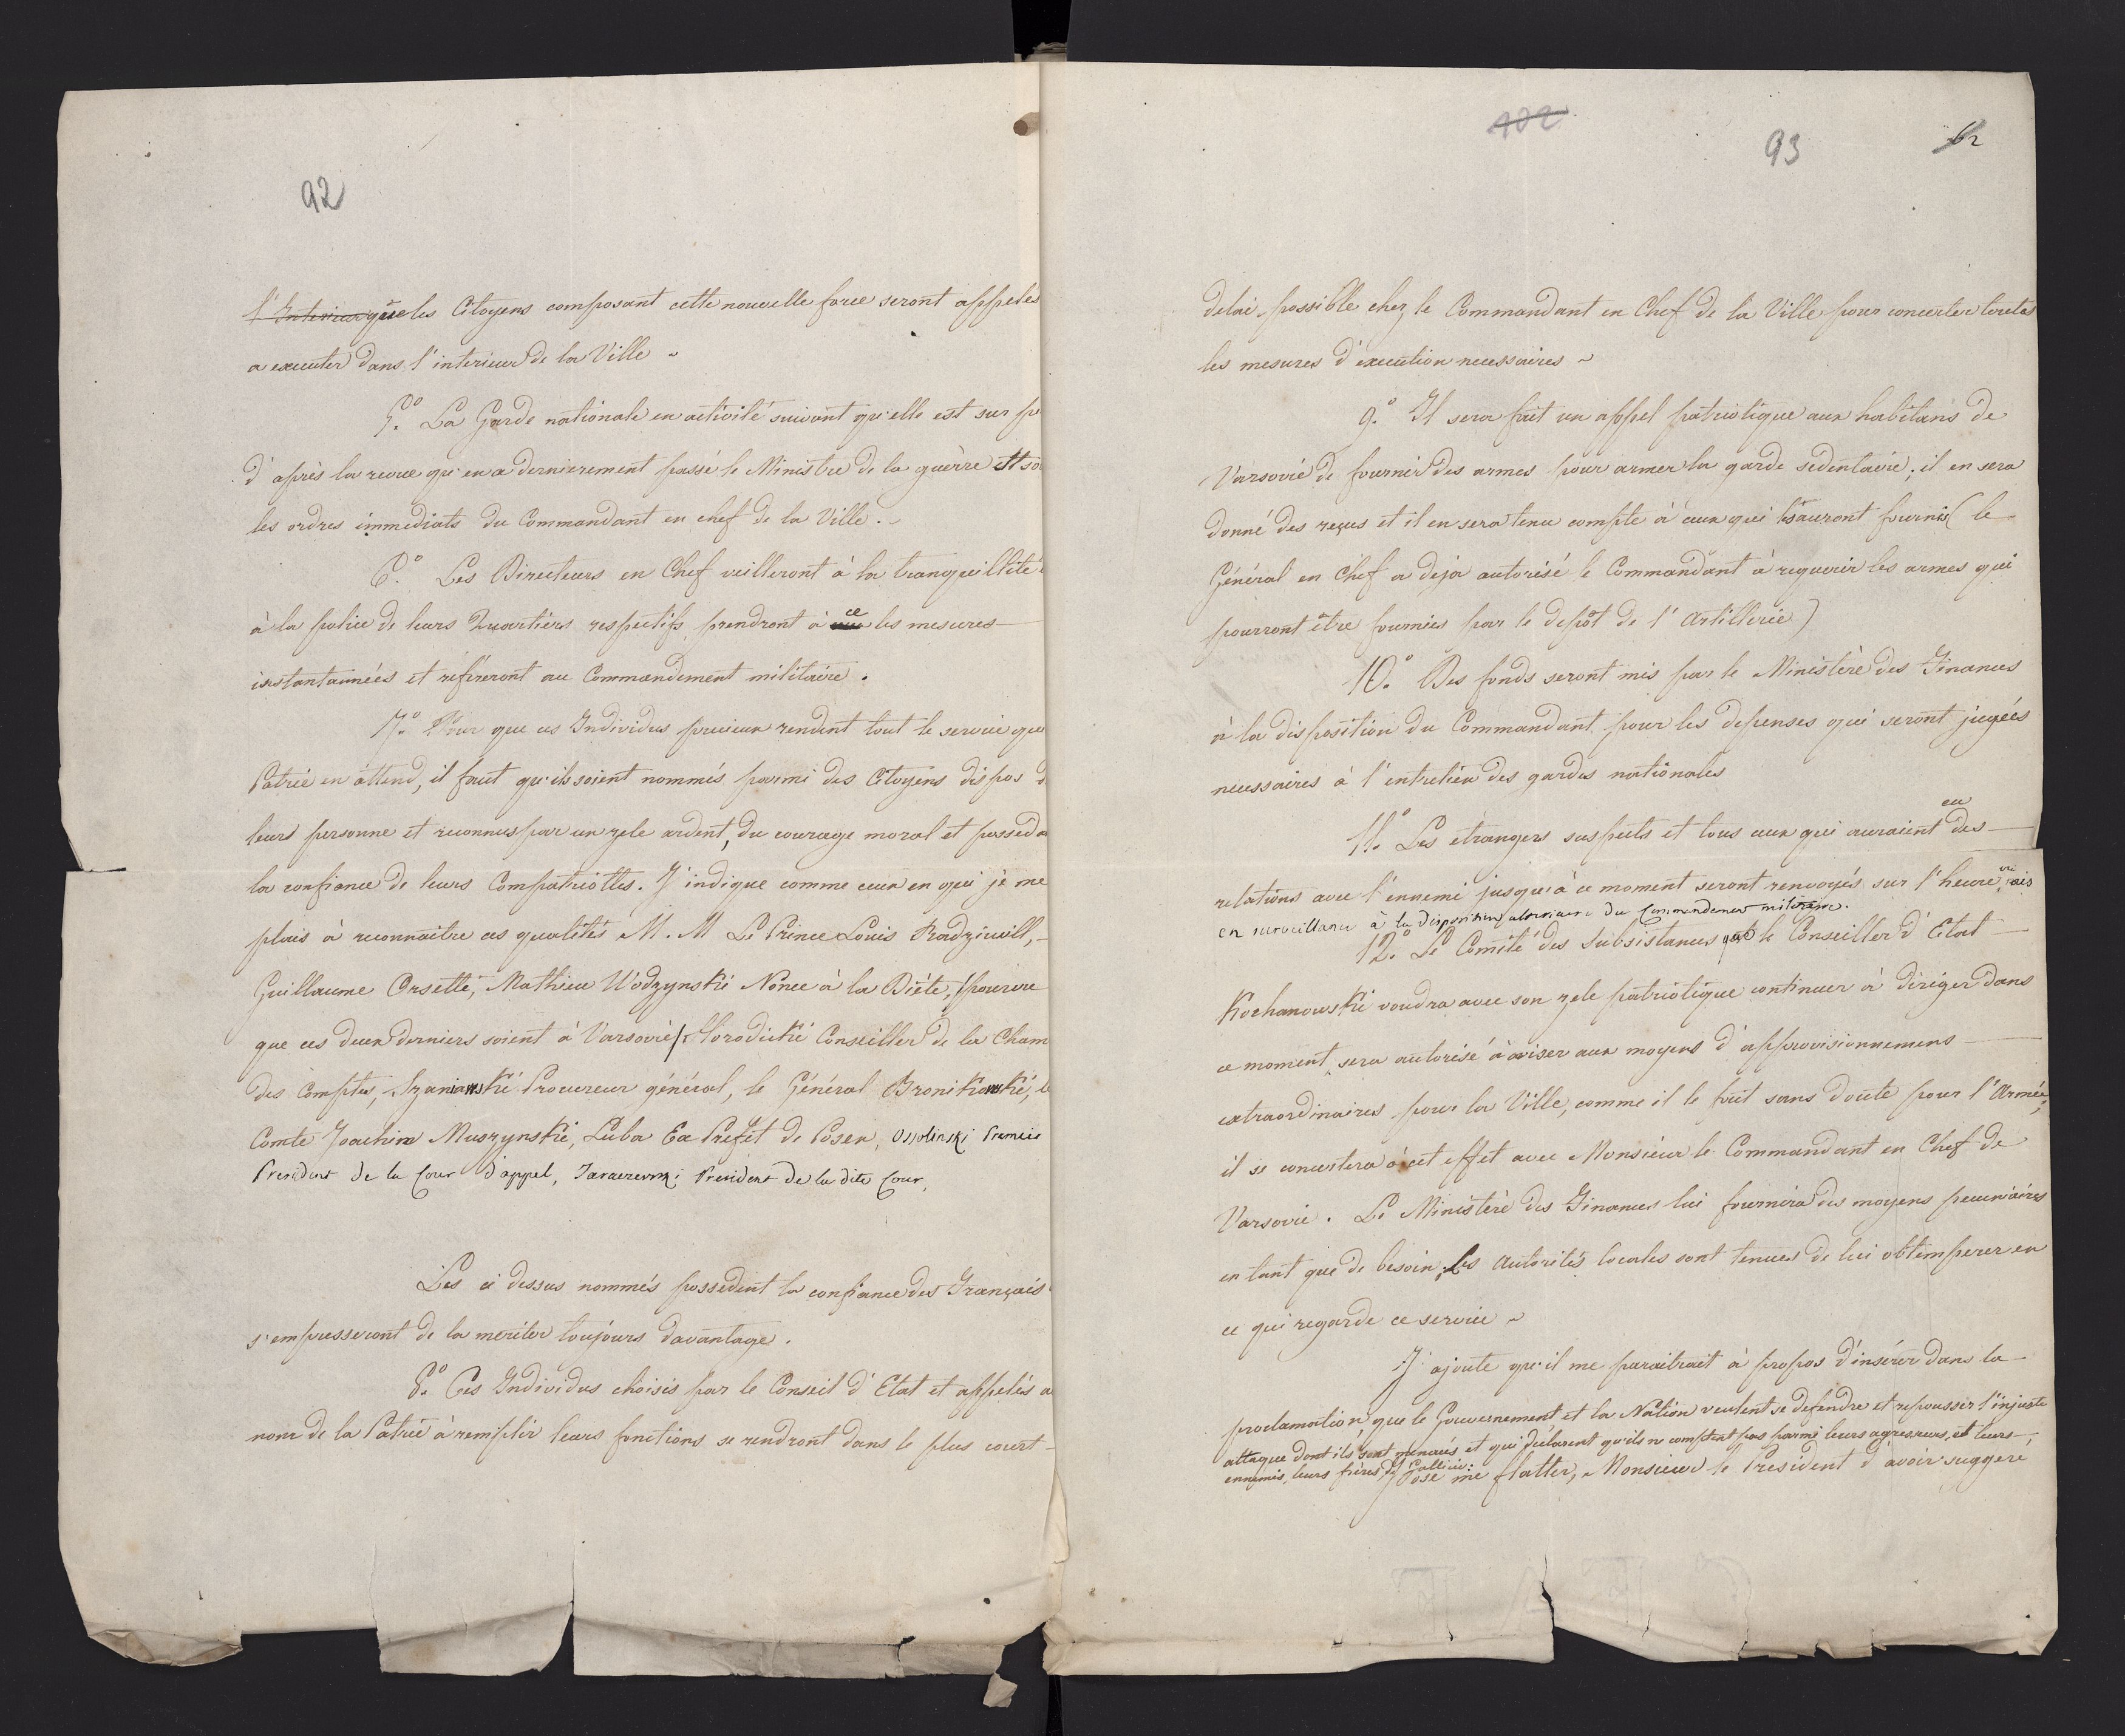 92
l'Interieur que les Citoyens composant cette nouvelle force seront appelés
a executer dans l'interieur de la Ville
5.º La Garde nationale en activité suivant qu'elle est sur
d'après la revue qu'en a dernierement passé le Ministre de la guèrre
les ordres immediats du Commandant en chef de la Ville.
6.º Les Directeurs en Chef veilleront à la tranquillité
à la police de leurs Quartiers respectifs, prendront à ce les mesures
instantannées et réfèreront au Commandement militaire.
7.º Pour que ces Individus precieux rendent tout le service que
Patrie en attend, il faut qu'ils soient nommés parmi des Citoyens dispos
leurs personne et reconnus par un zele ardent, du courage moral et
la confiance de leurs Compatriottes. J'indique comme ceux en qui je me
plais à reconnaitre ces qualités M. M Le Prince Louis Radziwill,
Guillaume Orsetti, Mathieu Wodzynski Nonce à la Diéte, (pourvu
que ces deux derniers soient à Varsovie) Horodicki Conseiller de la Cham
des Comptes, Szaniawski Procureur général, le Général Bronikowski,
Comte Joachin Muszynski, Luba Ex Prefét de Posen, Ossolinski Premier
President de la Cour d'appel, Taraczewski President de la dite Cour,
Les ci dessus nommés possedent la confiance des Français
s'empresseront de la meriter toujours davantage.
8.º Ces Individus choisis par le Conseil d'Etat et appelés a
nom de la Patrie à remplir leurs fonctions se rendront dans le plus court
102
93
62
delai possible chez le Commandant en Chef de la Ville pour concerter toutes
les mesures d'execution necessaires
9.º Il sera fait un appel patriotique aux habitans de
Varsovie de fournir des armes pour armer la garde sedentaire; il en sera
donné des reçus et il en sera tenu compte à ceux qui les auront fournis (le
Général en Chef a deja autorisé le Commandant à requerir les armes qui
pourront être fournies par le depôt de l'Artillerie)
10.º Des fonds seront mis par le Ministère des Finances
à la disposition du Commandant pour les depenses qui seront jugées
necessaires à l'entretien des gardes nationales
11.º Les etrangers suspects et tous ceux qui auraient eu des
relations avec l'ennemi jusqu'à ce moment seront renvoyés sur l'heure ou mis
en surveillance à la disposition du Commandement militaire.
12.º Le Comité des Subsistances que le Conseiller d'Etat
Kochanowski voudra avec son zele patriotique continuer à diriger dans
ce moment, sera autorisé à aviser aux moyens d'approvisionnemens
extraordinaires pour la Ville, comme il le fait sans doute pour l'Armée;
il se concertera à cet effet avec Monsieur le Commandant en Chef de
Varsovie. Le Ministère des Finances lui fournira des moyens pecuniaires
en tant que de besoin; Les Autorités locales sont tenues de lui obtemperer en
ce qui regarde ce service
J'ajoute qu'il me paraitrait à propos d'insérer dans la
proclamation, que le Gouvernement et la Nation veulent se defendre et repousser l'injuste
attaque dont ils sont menacés et qui déclarent qu'ils ne comptent pas parmi leurs agresseurs, et leurs
ennemis, leurs frères de Gallicie.
J'ose me flatter, Monsieur le President d'avoir suggeré